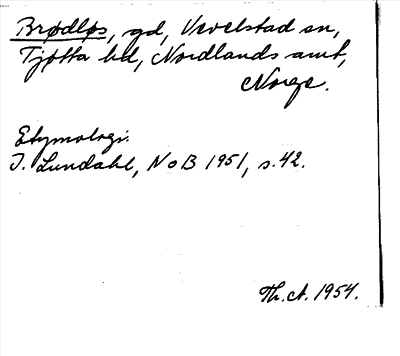 Brødløs, gd, Vevelstad sn,
Tjøtta hd, Nordlands amt,
Norge.
Etymologi:
I. Lundahl, NoB 1951, s. 42.
Th. A. 1954.